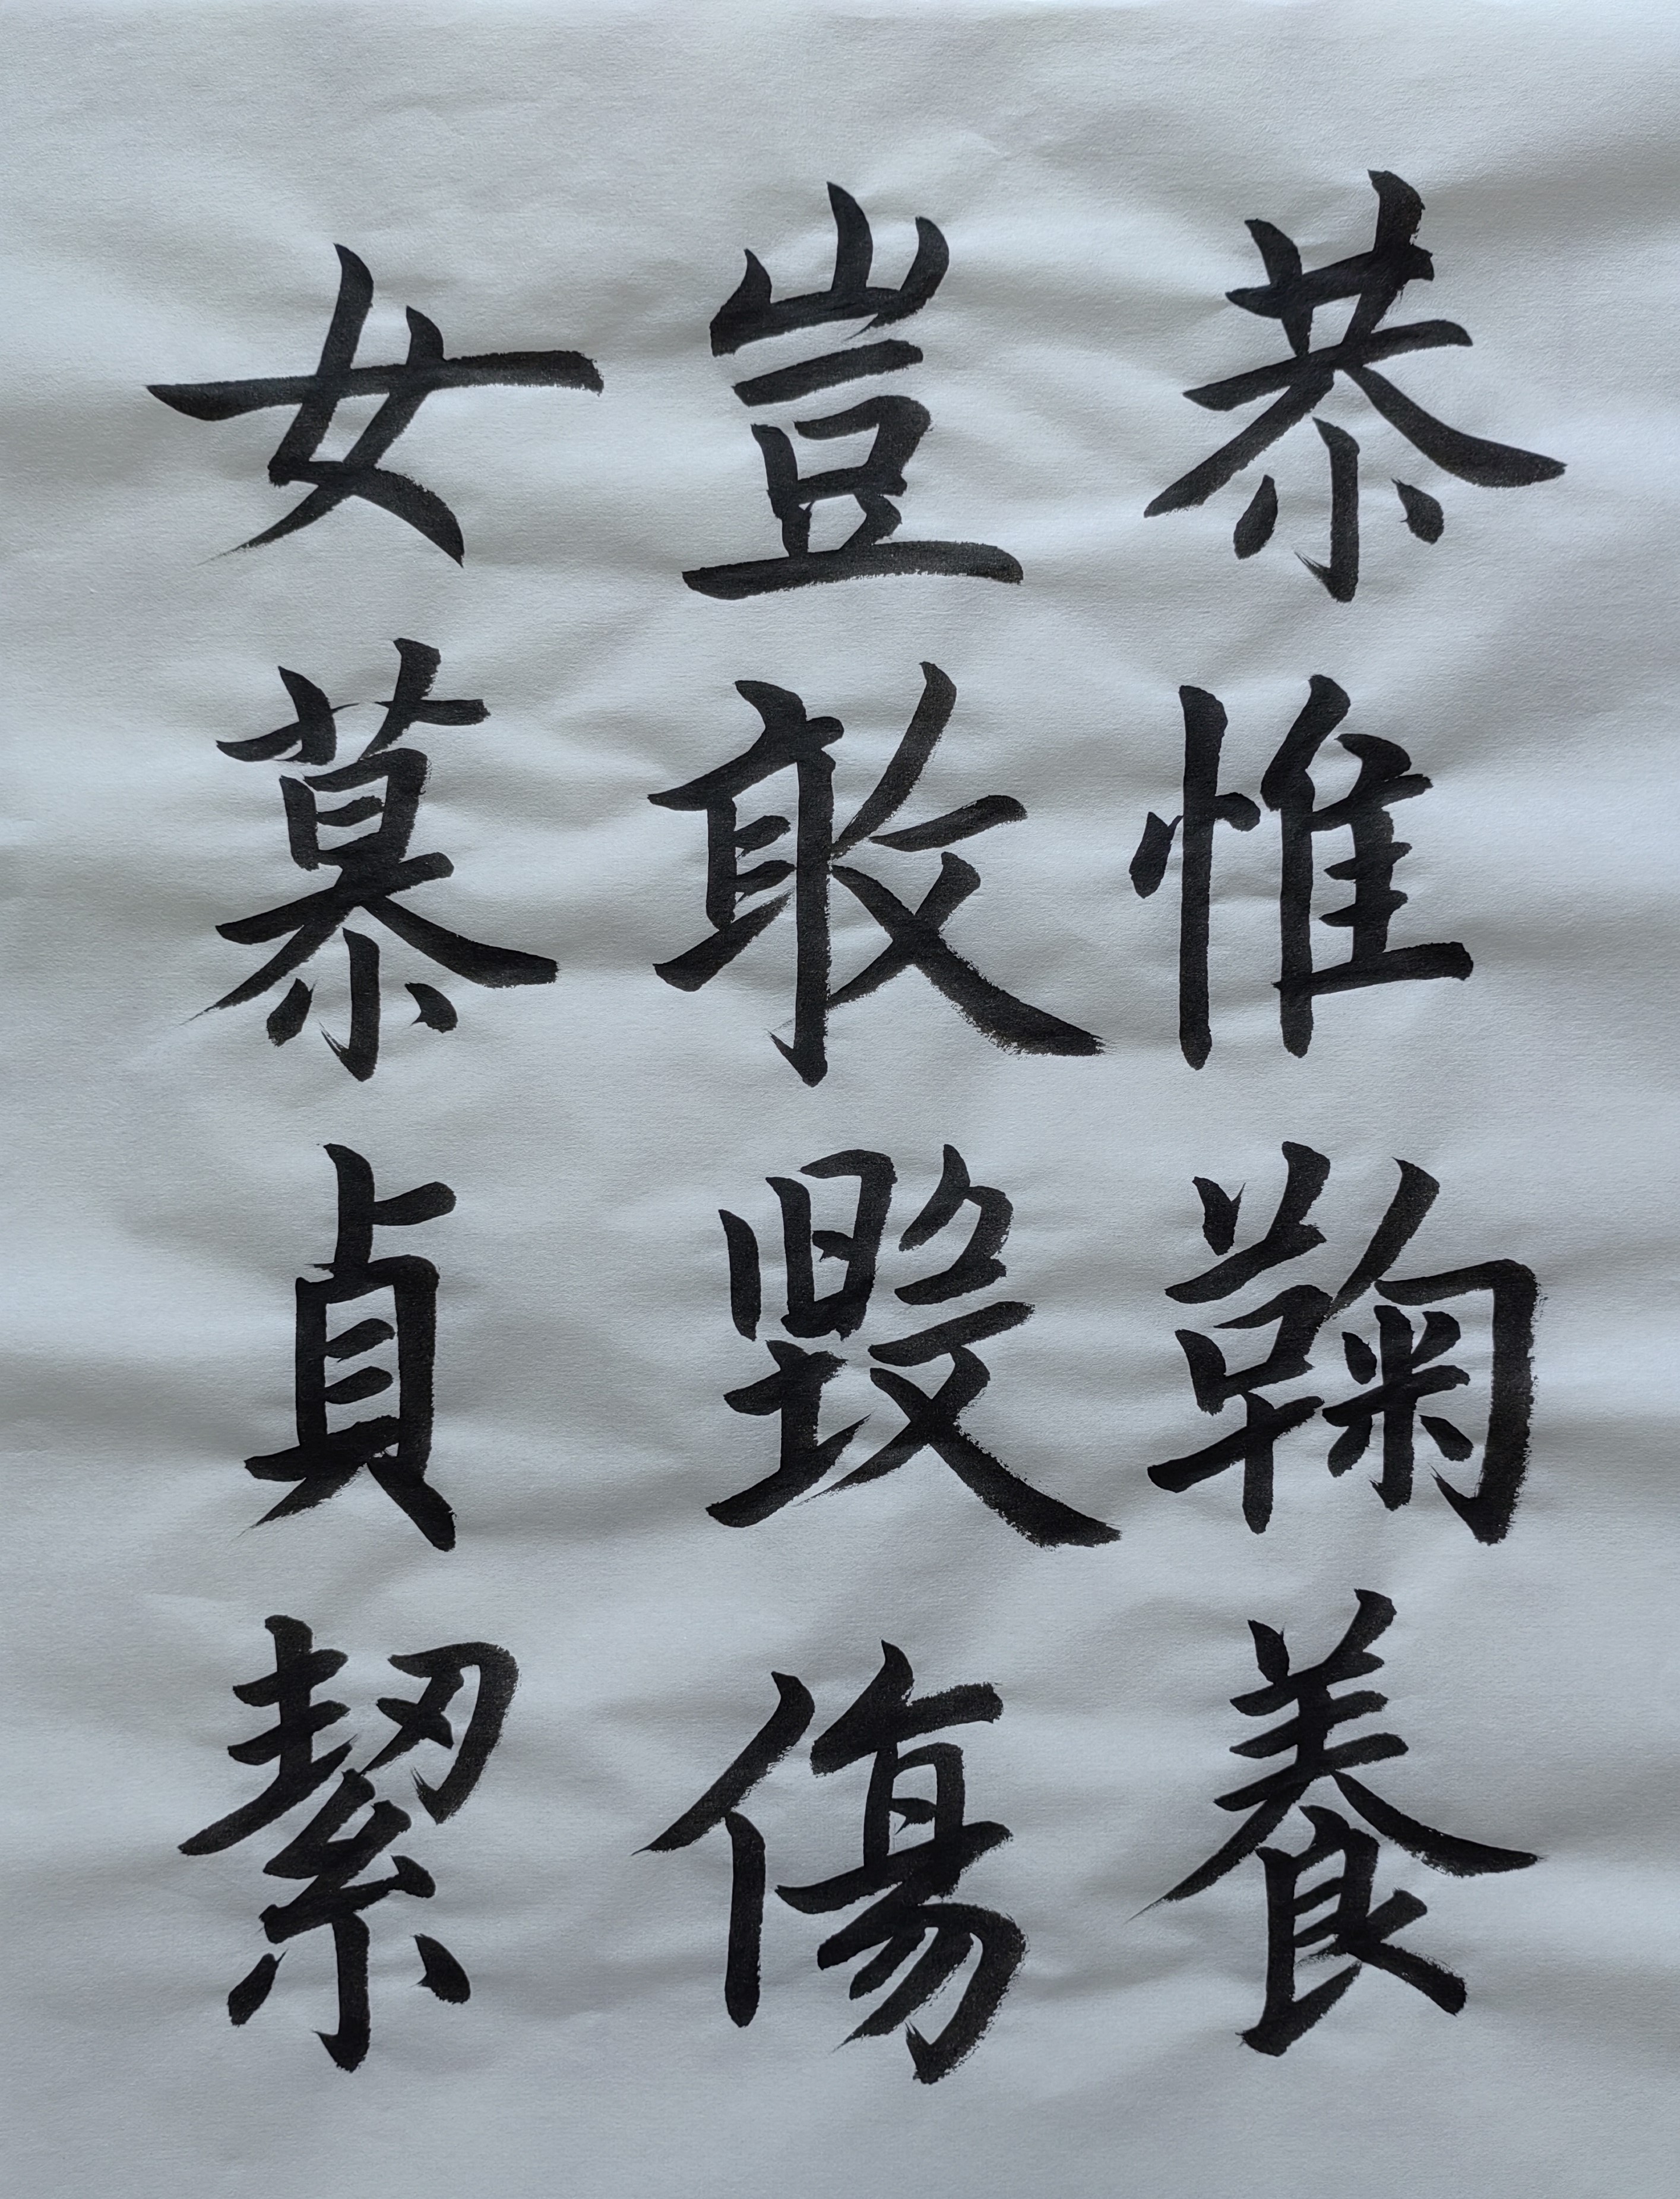 恭惟鞠養
豈敢毀傷
女慕貞絜